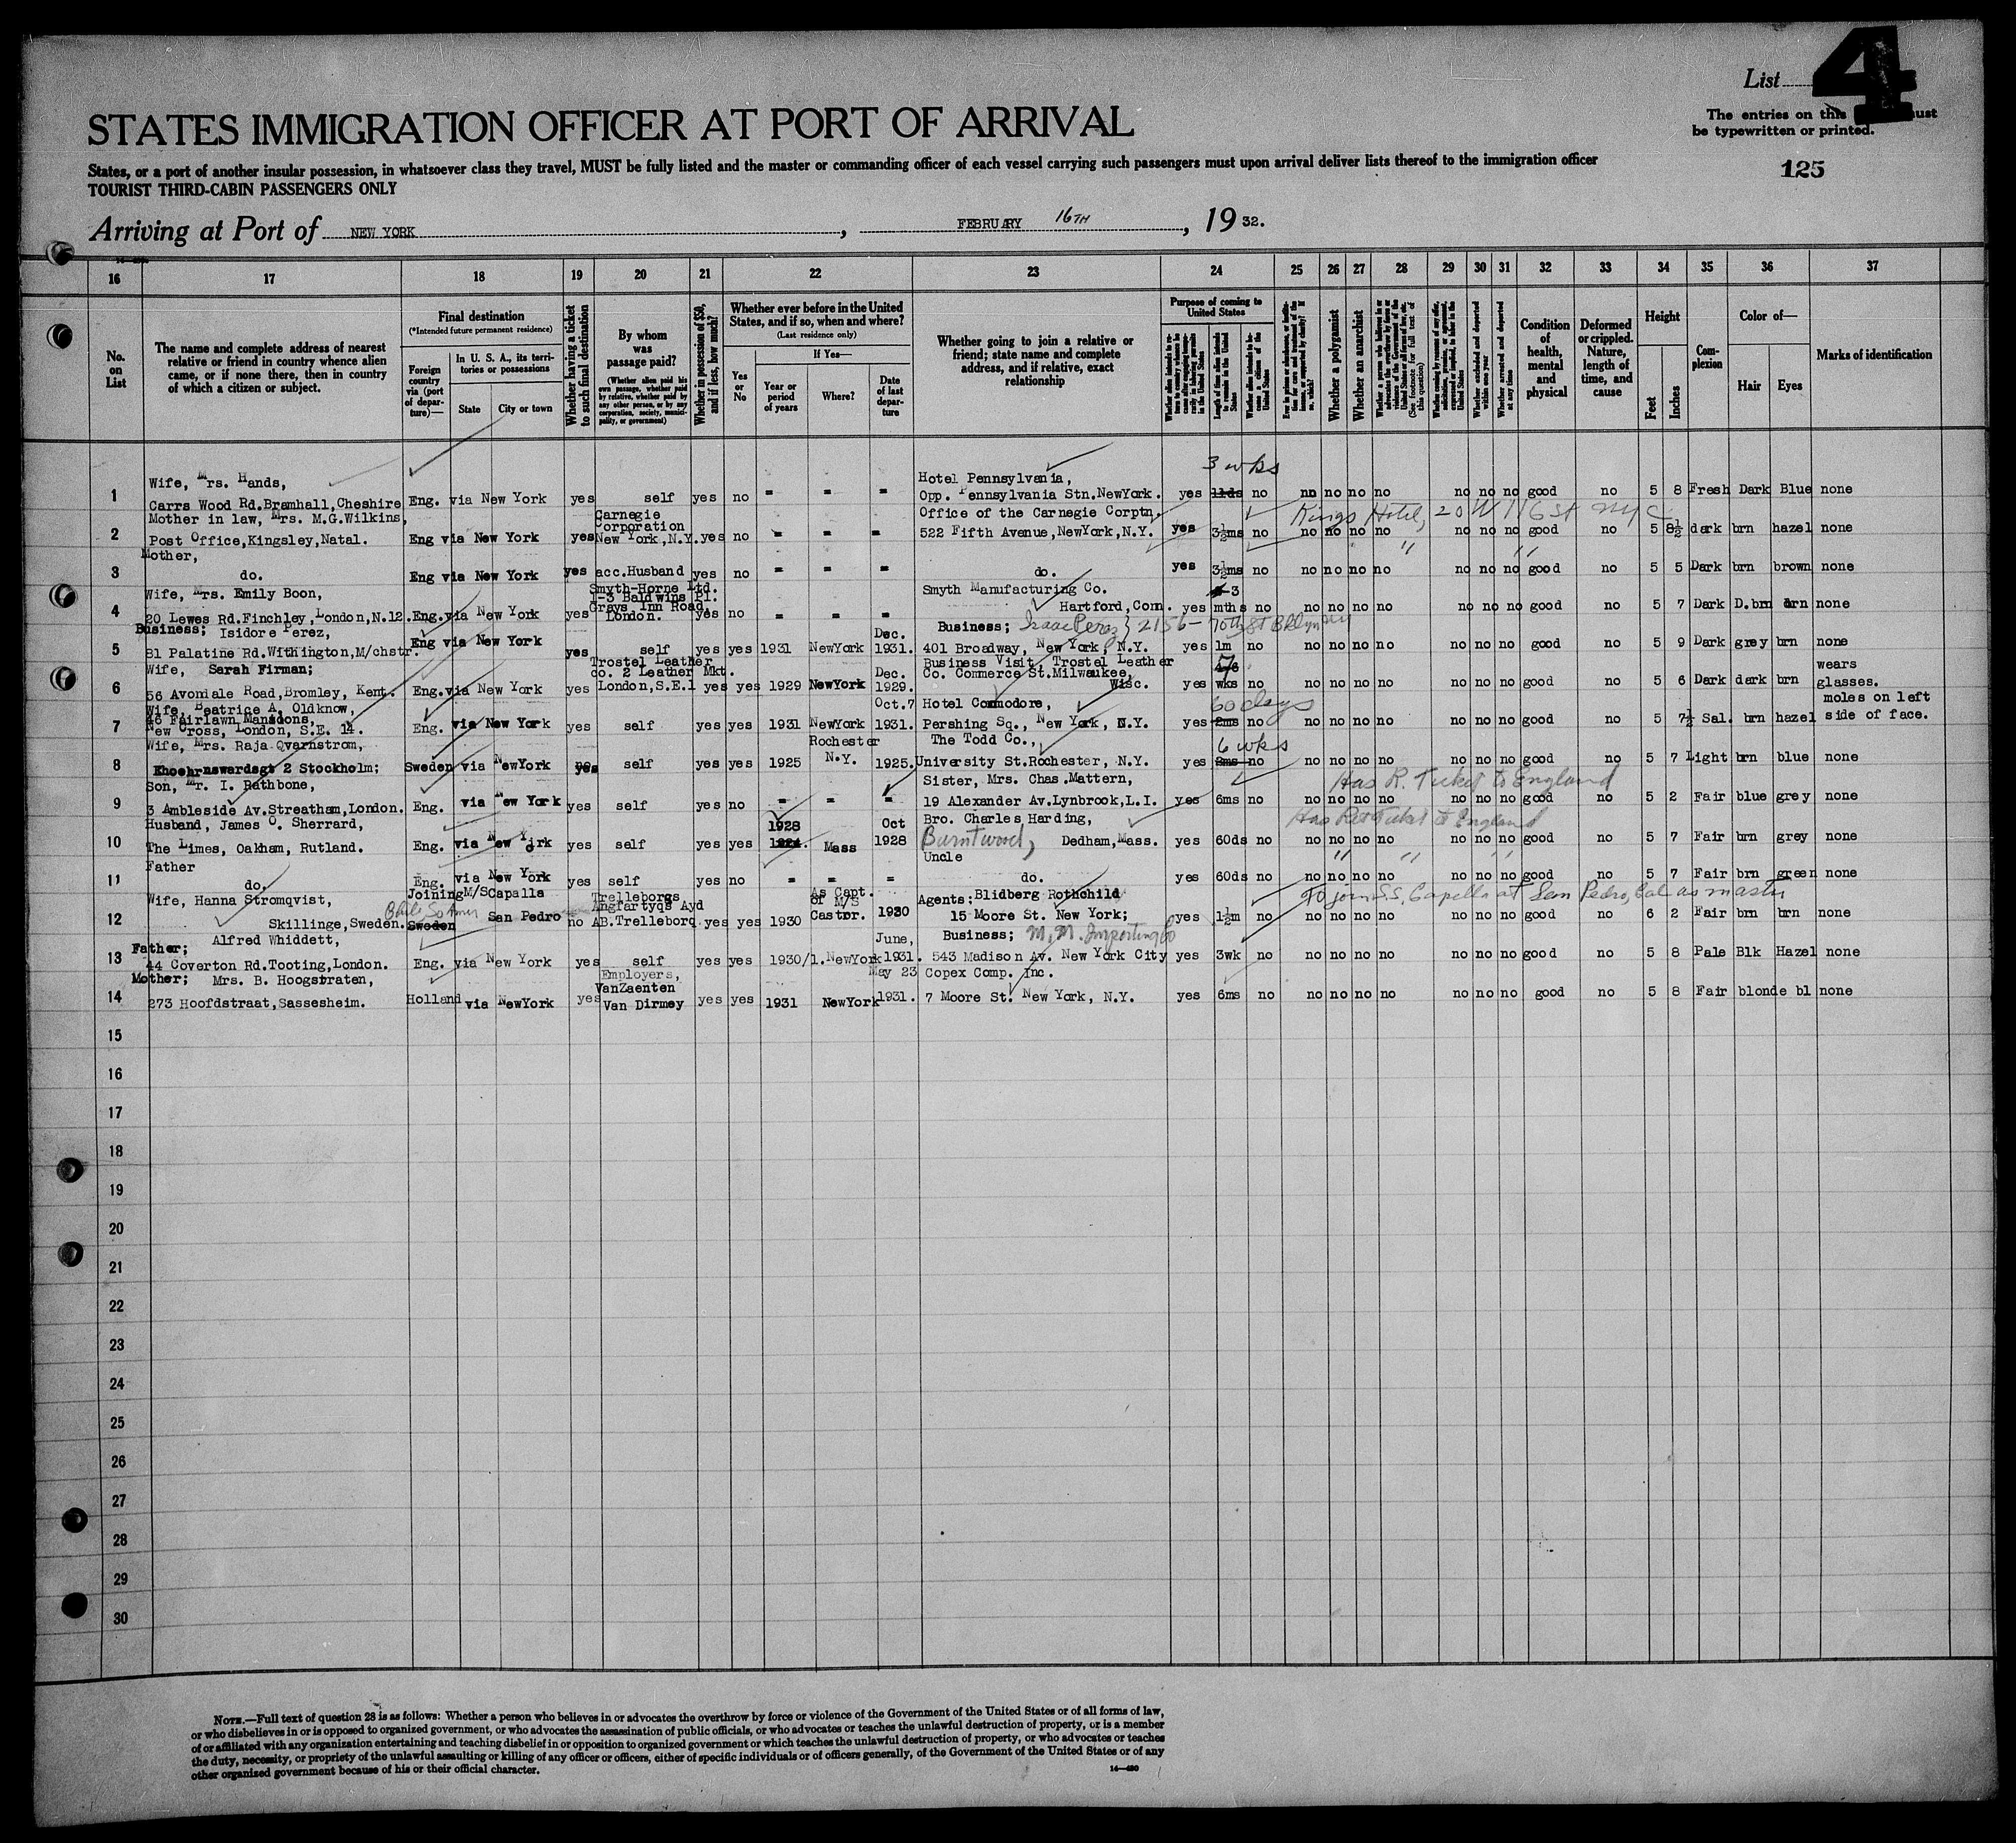 List 4
The entries on this must
be typewritten or printed.
125
STATES IMMIGRATION OFFICER AT PORT OF ARRIVAL
States, or a port of another insular possession, in whatsoever class they travel, MUST be fully listed and the master or commanding officer of each vessel carrying such passengers must upon arrival deliver lists thereof to the immigration officer
TOURIST THIRD-CABIN PASSENGERS ONLY
Arriving at Port of NEW YORK, FEBRUARY 16TH, 19 32.
16 17 18 19 20 21 22 23 24 25 26 27 28 29 30 31 32 33 34 35 36 37
No. on List
The name and complete address of nearest relative or friend in country whence alien came, or if none there, then in country of which a citizen or subject.
Final destination
(*Intended future permanent residence)
Foreign country via (port of departure)—
In U. S. A., its territories or possessions
State City or town
Whether having a ticket to such final destination
By whom was passage paid?
(Whether alien paid his own passage, whether paid by relative, whether paid by any other person, or by any corporation, society, municipality, or government)
Whether in possession of $50, and if less, how much?
Whether ever before in the United States, and if so, when and where?
(Last residence only)
Yes or No
If Yes—
Year or period of years
Where?
Date of last departure
Whether going to join a relative or friend; state name and complete address, and if relative, exact relationship
Purpose of coming to United States
Length of time alien intends to remain in the United States
Whether alien intends to become a citizen of the United States
Whether a polygamist
Whether an anarchist
(See footnote for full text of this question)
Whether excluded and deported within one year
Whether arrested and deported at any time
Condition of health, mental and physical
Deformed or crippled. Nature, length of time, and cause
Height
Feet Inches
Complexion
Color of—
Hair Eyes
Marks of identification
3 wks
Wife, Mrs. Hands, Hotel Pennsylvania,
1 Carrs Wood Rd.Bramhall,Cheshire Eng. via New York yes self yes no - - - Opp. Pennsylvania Stn.NewYork. yes 11ds no no no no no no no no good no 5 8 Fresh Dark Blue none
Mother in law, Mrs. M.G.Wilkins, Carnegie Corporation Office of the Carnegie Corptn. Kings Hotel, 20 W 116 St NYC
2 Post Office,Kingsley,Natal. Eng via New York yes New York,N.Y. yes no - - - 522 Fifth Avenue,NewYork,N.Y. yes 3½ms no no no no no no no no good no 5 8½ dark brn hazel none
Mother, " "
3 do. Eng via New York yes acc.Husband yes no - - - do. yes 3½ms no no no no no no no no good no 5 5 Dark brn brown none
Wife, Mrs. Emily Boon, Smyth-Horne Ltd. 1-3 Baldwins Pl. Grays Inn Road Smyth Manufacturing Co. 3
4 20 Lewes Rd.Finchley,London,N.12. Eng.via New York yes London. yes no - - - Hartford,Conn. yes mths no no no no no no no no good no 5 7 Dark D.brn brn none
Business; Isidore Perez, Dec. Business; Isaac Perez } 2156 - 70th St Bklyn NY
5 81 Palatine Rd.Withington,M/chstr. Eng via New York yes self yes yes 1931 NewYork 1931. 401 Broadway, New York, N.Y. yes 1m no no no no no no no no good no 5 9 Dark grey brn none
Wife, Sarah Firman; Trostel Leather co. 2 Leather Mkt. Dec. Business Visit, Trostel Leather Co. Commerce St.Milwaukee, 7 wears
6 56 Avondale Road,Bromley, Kent. Eng.via New York yes London,S.E.1 yes yes 1929 NewYork 1929. Wisc. yes wks no no no no no no no no good no 5 6 Dark dark brn glasses.
Wife, Beatrice A. Oldknow, 46 Fairlawn Mansions, Oct.7 Hotel Commodore, 60 days moles on left
7 New Cross, London, S.E. 14. Eng. via New York yes self yes yes 1931 NewYork 1931. Pershing Sq., New York, N.Y. yes 2ms no no no no no no no no good no 5 7½ Sal. brn hazel side of face.
Wife, Mrs. Raja Qvarnstrom, Rochester The Todd Co., 6 wks
8 2 Stockholm; Sweden via NewYork yes self yes yes 1925 N.Y. 1925. University St.Rochester, N.Y. yes 2ms no no no no no no no no good no 5 7 Light brn blue none
Son, Mr. I. Rathbone, Sister, Mrs. Chas.Mattern, Has R. Ticket to England
9 3 Ambleside Av.Streatham,London. Eng. via New York yes self yes no - - - 19 Alexander Av.Lynbrook,L.I. yes 6ms no no no no no no no no good no 5 2 Fair blue grey none
Husband, James O. Sherrard, 1928 Oct Bro. Charles Harding, Has Ret Ticket to England
10 The Limes, Oakham, Rutland. Eng. via New York yes self yes yes Mass 1928 Burntwood, Dedham,Mass. yes 60ds no no no no no no no no good no 5 7 Fair brn grey none
Father Uncle " " "
11 do. Eng. via New York yes self yes no - - - do. yes 60ds no no no no no no no no good no 5 7 Fair brn green none
Wife, Hanna Stromqvist, Joining M/SCapalla Trelleborgs Angfartygs Ayd As Capt. of M/S Agents; Blidberg Rothchild To join S.S. Capella at San Pedro, Cal as master
12 Skillinge,Sweden. Sweden San Pedro no AB.Trelleborg. yes yes 1930 Castor. 1930 15 Moore St. New York; yes 1½m no no no no no no no no good no 6 2 Fair brn brn none
Father; Alfred Whiddett, June, Business; M.M. Importing Co
13 44 Coverton Rd.Tooting,London. Eng. via New York yes self yes yes 1930/1. NewYork 1931. 543 Madison Av. New York City yes 3wk no no no no no no no no good no 5 8 Pale Blk Hazel none
Mother; Mrs. B. Hoogstraten, Employers, VanZaenten May 23 Copex Comp. Inc.
14 273 Hoofdstraat,Sassesheim. Holland via NewYork yes Van Dirmey yes yes 1931 NewYork 1931. 7 Moore St. New York, N.Y. yes 6ms no no no no no no no no good no 5 8 Fair blonde bl none
15
16
17
18
19
20
21
22
23
24
25
26
27
28
29
30
NOTE.—Full text of question 28 is as follows: Whether a person who believes in or advocates the overthrow by force or violence of the Government of the United States or of all forms of law,
or who disbelieves in or is opposed to organized government, or who advocates the assassination of public officials, or who advocates or teaches the unlawful destruction of property, or is a member
of or affiliated with any organization entertaining and teaching disbelief in or opposition to organized government or which teaches the unlawful destruction of property, or who advocates or teaches
the duty, necessity, or propriety of the unlawful assaulting or killing of any officer or officers, either of specific individuals or of officers generally, of the Government of the United States or of any
other organized government because of his or their official character.
14—430